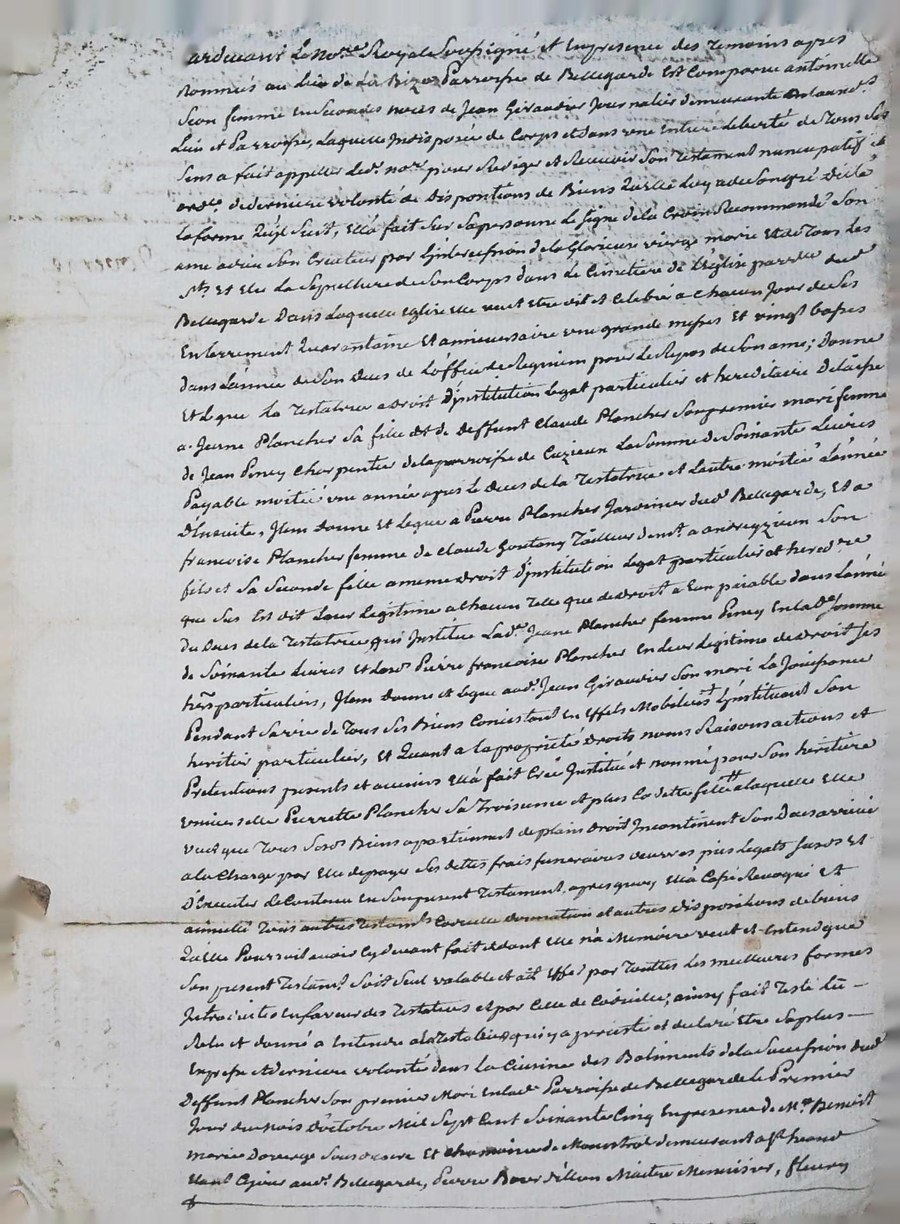 ardevant Le not.re Royal Soussigné et En presence des Temoins apres
nommés au Lieu de La Paroisse de Bellegarde Est Comparue antoinette
Seon femme En Secondes noces de Jean Giraudier Journalier demeurante
Lieu et Parroisse, Laquelle Indisposée de Corps et dans une Entiere Liberté de Tous Ses
Sens a fait appeller Led. not.re pour Rediger et Recevoir Son Testament nuncupatif et
ord.re de derniere volonté de dispositions de Biens
la forme qui Suit, Ella fait Sur Sa personne Le Signe de la Croix Recommandé Son
ame a dieu Son Createur par L'intercession de la Glorieuse vierge marie Et de Tous Les
Sts. Et Elu La Sepulture de Son Corps dans Le Cimetiere de L'Eglise
Bellegarde Dans Laquelle Eglise Elle veut Etre dit et Celebré a Chacun Jour de Ses
Enterrement Quarantaine Et anniversaire une grande messe Et vingt basses
dans L'année de Son Deces de L'office de Requiem pour Le Repos de Son ame; Donne
Et Legue La Testatrice a Droit D'institution Legat particulier et hereditaire
a Jeane Plancher Sa fille et de deffunt Claude Plancher Son premier mari femme
de Jean Peney Charpentier de la parroisse de Cuzieu La Somme de Soixante Livres
Payable moitié une année apres Le Deces de la Testatrice et L'autre moitié L'année
D'Ensuite, Item Donne Et Legue a Pierre Plancher Jardinier dud. Bellegarde, Et a
francoise Plancher femme de Claude Tailleur dem.t a andrezieu Son
fils et Sa Seconde fille a meme Droit D'institution Legat particulier et hered.re
que Sus Est dit Leur Legitime a Chacun Telle que de droit payable dans L'année
Du Deces de la Testatrice qui Institue Lad. Jeane Plancher femme Peney En Lad. Somme
de Soixante Livres et Lesd. Pierre francoise Plancher En Leur Legitime de droit Ses
particuliers, Item Donne et Legue aud. Jean Giraudier Son mari La Jouissance
Pendant Sa vie de Tous Ses Biens Consistant En Effets Mobiliers L'instituant Son
heritier particulier, Et Quant a la propriété Droits noms Raisons actions et
Pretentions presents et avenirs Ella fait Créé Institué et nommé pour Son heritiere
universelle Pierrette Plancher Sa Troisieme et plus fille a laquelle Elle
veut que Tous Sesd. Biens apartiennent de plain Droit Incontinent Son Deces arrivé
a la Charge par Elle de payer Ses dettes frais funeraires œuvres pies Legats Susd. Et
D'Executer Le Contenu En Son present Testament, apres quoy Ella Cassé Revoqué Et
annullé Tous autres Testam.ts donation et autres dispositions de biens
Qu'elle Pourroit avoir Cy devant fait et dont Elle n'a Memoire veut et Entend que
Son present Testam.t Soit Seul valable et ait Effet par Touttes Les meilleures formes
Introduites En faveur des Testateurs et par Celle de Codicille; ainsy fait Testé Lû
Relu et donné a Entendre a la Testatrice qui y a persisté et declaré Etre Sa plus
Expresse et derniere volonté dans La Cuisine des Batiments de la Succession dud.
Deffunt Plancher Son premier Mari En lad. Parroisse de Bellegarde Le Premier
Jour du Mois D'octobre Mil Sept Cent Soixante Cinq En presence de M.re Benoist
marie Et demeurant a
aud. Bellegarde, Pierre Bourdillon Maitre Menuisier, fleury